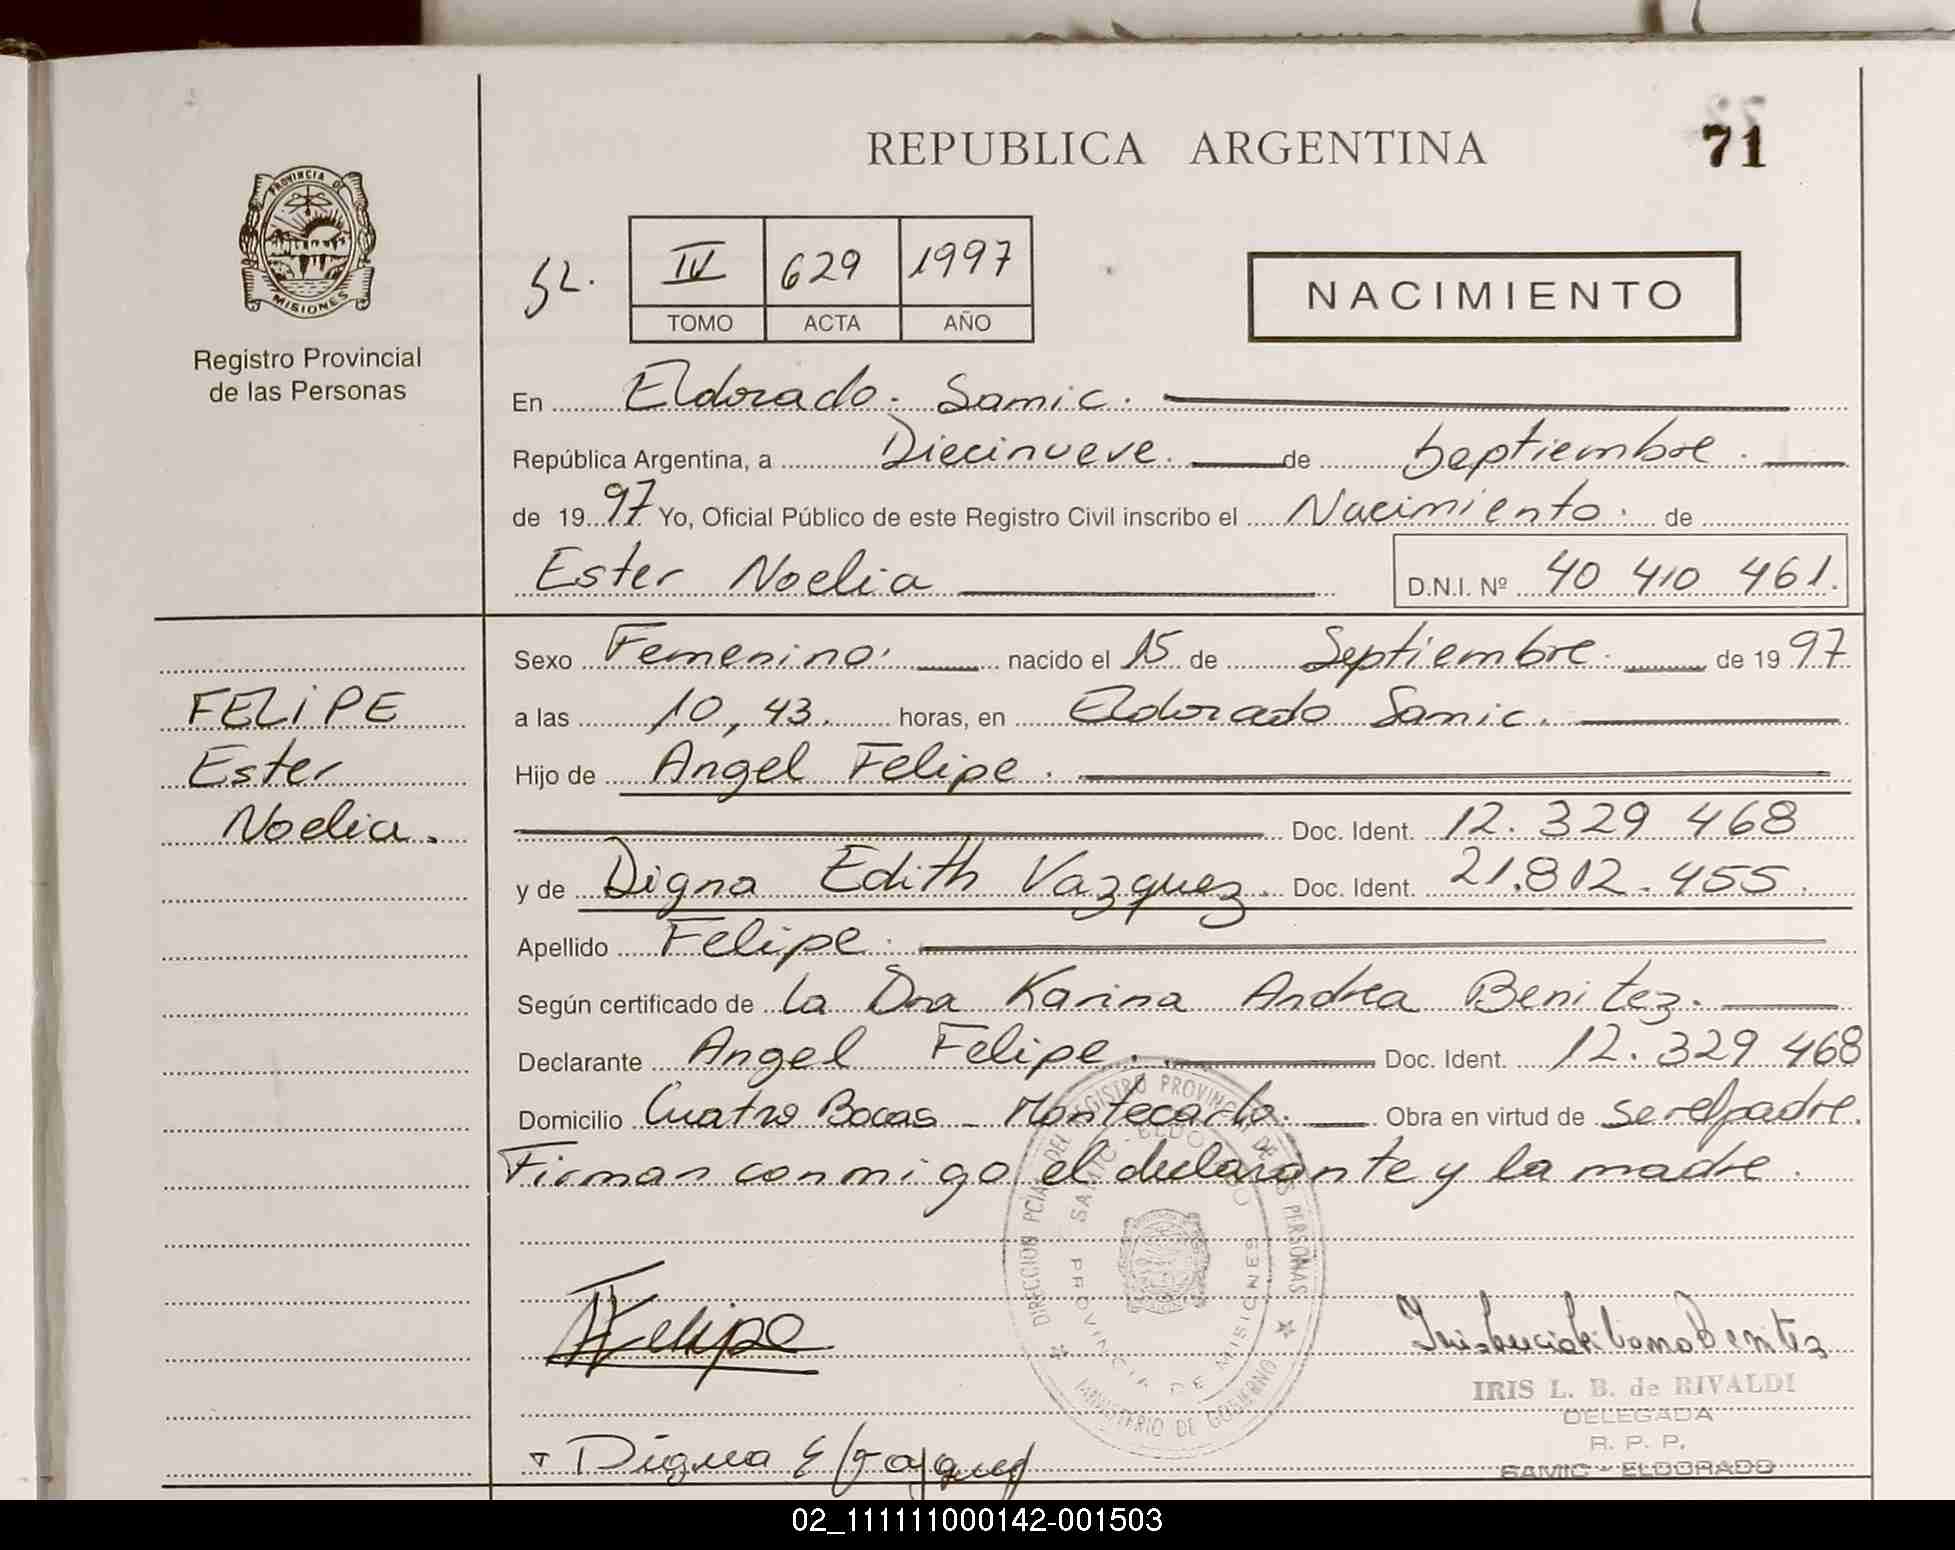 REPUBLICA ARGENTINA
71
PROVINCIA DE
MISIONES
Registro Provincial
de las Personas
IV 629 1997
TOMO ACTA AÑO
NACIMIENTO
En Eldorado. Samic.
República Argentina, a Diecinueve. de Septiembre.
de 1997 Yo, Oficial Público de este Registro Civil inscribo el Nacimiento. de
Ester Noelia D.N.I. Nº 40 410 461.
FELIPE
Ester
Noelia.
Sexo Femenino. nacido el 15 de Septiembre. de 1997
a las 10,43. horas, en Eldorado Samic.
Hijo de Angel Felipe.
Doc. Ident. 12.329 468
y de Digna Edith Vazquez. Doc. Ident. 21.812.455.
Apellido Felipe.
Según certificado de la Dra Karina Andrea Benitez.
Declarante Angel Felipe. Doc. Ident. 12.329 468
Domicilio Cuatro Bocas - Montecarlo. Obra en virtud de ser el padre.
Firman conmigo el declarante y la madre.
DIRECCION PCIAL. DEL REGISTRO PROVINCIAL DE LAS PERSONAS
SAMIC - ELDORADO
PROVINCIA DE MISIONES
MINISTERIO DE GOBIERNO
Felipe
IRIS L. B. de RIVALDI
DELEGADA
R. P. P.
SAMIC - ELDORADO
Digna E Vazquez
02_111111000142-001503